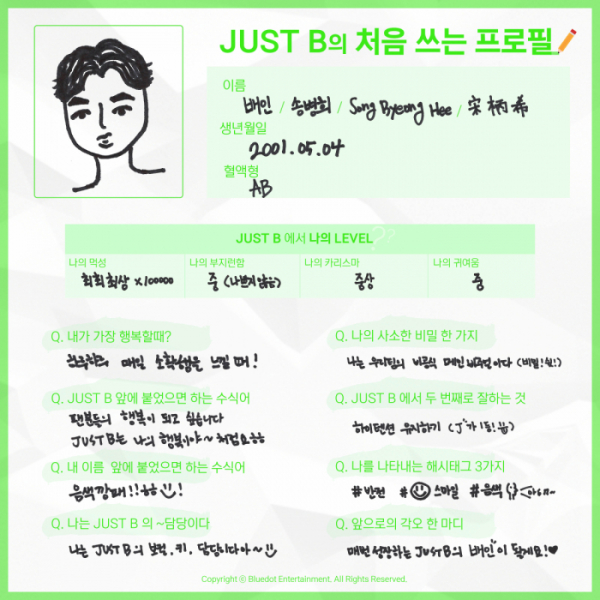 JUST B의 처음 쓰는 프로필
이름
배인 / 송병희 / Song Byeong Hee / 宋 炳 希
생년월일
2001.05.04
혈액형
AB
JUST B 에서 나의 LEVEL
나의 먹성
나의 부지런함
나의 카리스마
나의 귀여움
최최최상 x100000
중 (나쁘지 않음)
중상
중
Q. 내가 가장 행복할때?
매일 소확행을 느낄 때!
Q. 나의 사소한 비밀 한 가지
나는 우리팀의 비공식 메인 비주얼이다 (비밀!쉿!)
Q. JUST B 앞에 붙었으면 하는 수식어
팬분들의 행복이 되고 싶습니다
JUST B는 나의 행복이야~ 처럼요ㅎㅎ
Q. JUST B 에서 두 번째로 잘하는 것
하이텐션 유지하기
Q. 내 이름 앞에 붙었으면 하는 수식어
음색깡패!!ㅎㅎ!
Q. 나를 나타내는 해시태그 3가지
#반전 # 스마일 #음색
Q. 나는 JUST B 의 ~담당이다
나는 JUST B의 보컬, 키, 담당이다아~
Q. 앞으로의 각오 한 마디
매번 성장하는 JUST B의 "배인"이 될게요!♥
Copyright ⓒ Bluedot Entertainment. All Rights Reserved.